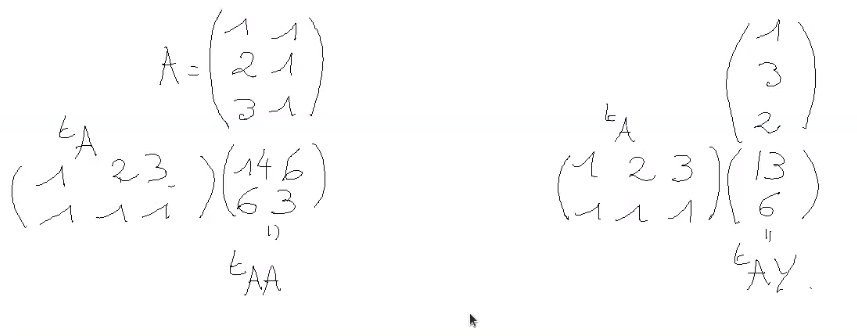 A = ( 1 1
2 1
3 1 )
ᵗA
( 1 2 3
1 1 1 )
( 14 6
6 3 )
ᵗAA
( 1
3
2 )
ᵗA
( 1 2 3
1 1 1 )
( 13
6 )
=
ᵗAY.